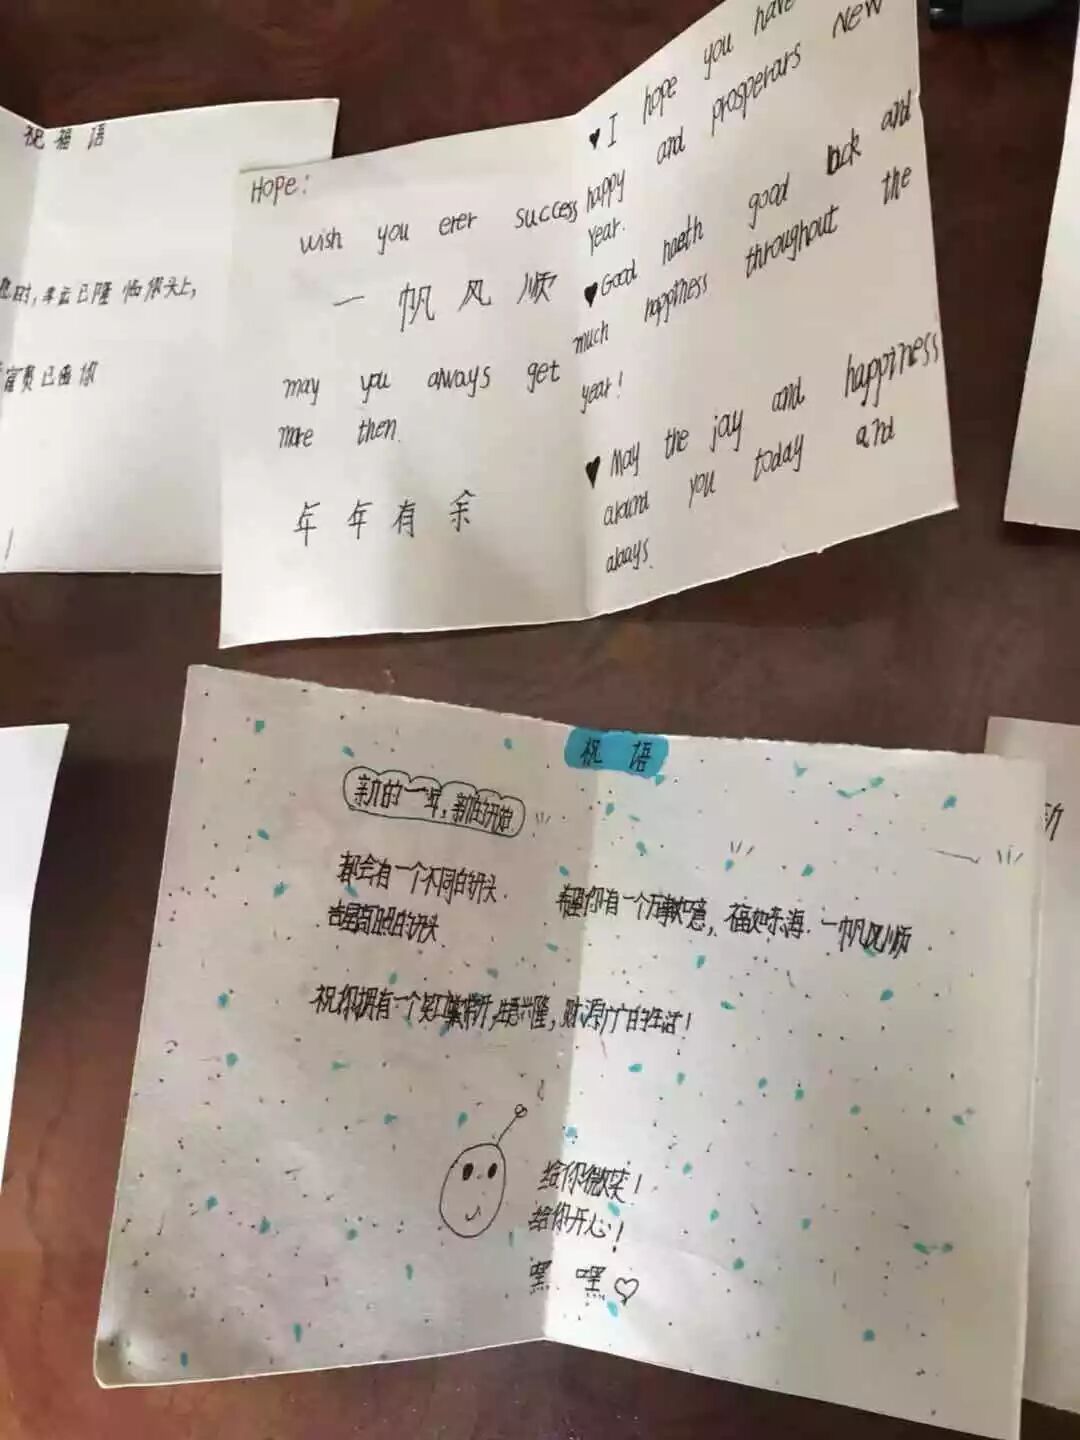 祝福语
时,幸运已降临你头上,
富贵已由你
Hope:
wish you erer success
一帆风顺
may you always get
more then.
年年有余
♥I hope you have
happy and prosperars new
year.
♥Good haeth good back and
much happiness throughout the
year!
♥May the joy and happiness
around you today and
always.
祝语
新的一年,新的开始
都会有一个不同的开头.
吉星高照的开头
希望你有一个万事如意,福如东海.一帆风顺
祝你拥有一个笑口常开,生意兴隆,财源广广的生活!
给你微笑!
给你开心!
嘿 嘿♡